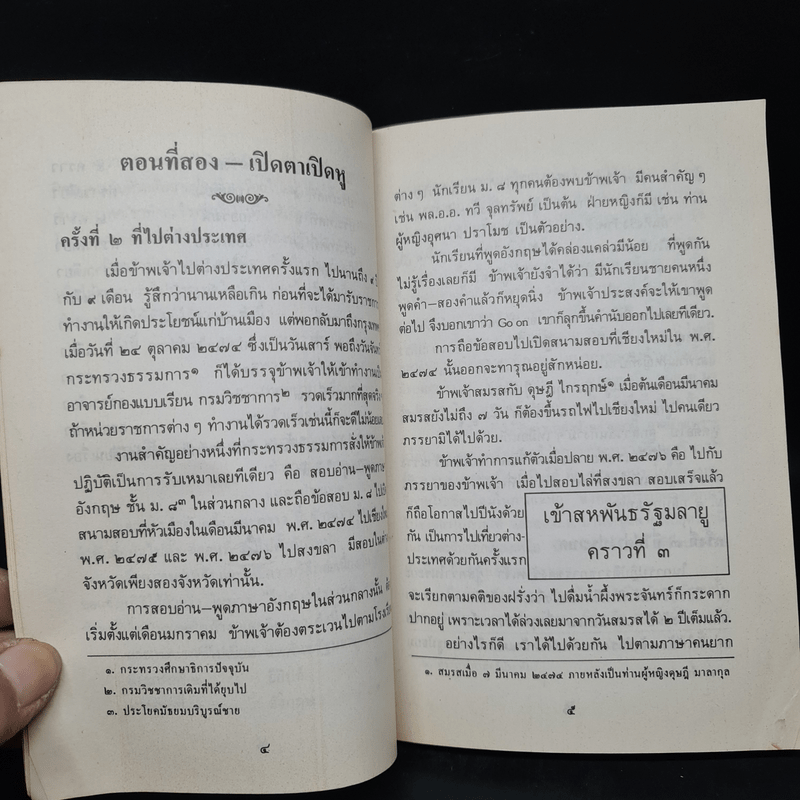 ตอนที่สอง — เปิดตาเปิดหู
ครั้งที่ ๒ ที่ไปต่างประเทศ
เมื่อข้าพเจ้าไปต่างประเทศครั้งแรก ไปนานถึง ๙
กับ ๙ เดือน รู้สึกว่านานเหลือเกิน ก่อนที่จะได้มารับราชการ
ทำงานให้เกิดประโยชน์แก่บ้านเมือง แต่พอกลับมาถึงกรุงเทพ
เมื่อวันที่ ๒๔ ตุลาคม ๒๔๗๔ ซึ่งเป็นวันเสาร์ พอถึงวันจันทร์
กระทรวงธรรมการ๑ ก็ได้บรรจุข้าพเจ้าให้เข้าทำงานเป็น
อาจารย์กองแบบเรียน กรมวิชชาการ๒ รวดเร็วมากที่สุดจริง
ถ้าหน่วยราชการต่าง ๆ ทำงานได้รวดเร็วเช่นนี้ก็จะดีไม่น้อยเลย
งานสำคัญอย่างหนึ่งที่กระทรวงธรรมการสั่งให้ข้าพเจ้า
ปฏิบัติเป็นการรับเหมาเลยทีเดียว คือ สอบอ่าน–พูดภาษา
อังกฤษ ชั้น ม. ๘๓ ในส่วนกลาง และถือข้อสอบ ม. ๘ ไปเปิด
สนามสอบที่หัวเมืองในเดือนมีนาคม พ.ศ. ๒๔๗๔ ไปเชียงใหม่
พ.ศ. ๒๔๗๕ และ พ.ศ. ๒๔๗๖ ไปสงขลา มีสอบใน
จังหวัดเพียงสองจังหวัดเท่านั้น
การสอบอ่าน–พูดภาษาอังกฤษในส่วนกลางนั้น
เริ่มตั้งแต่เดือนมกราคม ข้าพเจ้าต้องตระเวนไปตามโรงเรียน
๑. กระทรวงศึกษาธิการปัจจุบัน
๒. กรมวิชชาการเดิมที่ได้ยุบไป
๓. ประโยคมัธยมบริบูรณ์ชาย
๔
ต่าง ๆ นักเรียน ม. ๘ ทุกคนต้องพบข้าพเจ้า มีคนสำคัญ ๆ
เช่น พล.อ.อ. ทวี จุลทรัพย์ เป็นต้น ฝ่ายหญิงก็มี เช่น ท่าน
ผู้หญิงอุศนา ปราโมช เป็นตัวอย่าง
นักเรียนที่พูดอังกฤษได้คล่องแคล่วมีน้อย ที่พูดกัน
ไม่รู้เรื่องเลยก็มี ข้าพเจ้ายังจำได้ว่า มีนักเรียนชายคนหนึ่ง
พูดคำ–สองคำแล้วก็หยุดนิ่ง ข้าพเจ้าประสงค์จะให้เขาพูด
ต่อไป จึงบอกเขาว่า Go on เขาก็ลุกขึ้นคำนับออกไปเลยทีเดียว.
การถือข้อสอบไปเปิดสนามสอบที่เชียงใหม่ใน พ.ศ.
๒๔๗๔ นั้นออกจะทารุณอยู่สักหน่อย.
ข้าพเจ้าสมรสกับ ดุษฎี ไกรฤกษ์๑ เมื่อต้นเดือนมีนาคม
สมรสยังไม่ถึง ๗ วัน ก็ต้องขึ้นรถไฟไปเชียงใหม่ ไปคนเดียว
ภรรยามิได้ไปด้วย.
ข้าพเจ้าทำการแก้ตัวเมื่อปลาย พ.ศ. ๒๔๗๖ คือ ไปกับ
ภรรยาของข้าพเจ้า เมื่อไปสอบไล่ที่สงขลา สอบเสร็จแล้ว
ก็ถือโอกาสไปปีนังด้วย
กัน เป็นการไปเที่ยวต่าง-
ประเทศด้วยกันครั้งแรก
เข้าสหพันธรัฐมลายู
คราวที่ ๓
จะเรียกตามคติของฝรั่งว่า ไปดื่มน้ำผึ้งพระจันทร์ก็กระดาก
ปากอยู่ เพราะเวลาได้ล่วงเลยมาจากวันสมรสได้ ๒ ปีเต็มแล้ว.
อย่างไรก็ดี เราได้ไปด้วยกัน ไปตามภาษาคนยาก
๑. สมรสเมื่อ ๗ มีนาคม ๒๔๗๔ ภายหลังเป็นท่านผู้หญิงดุษฎี มาลากุล
๕